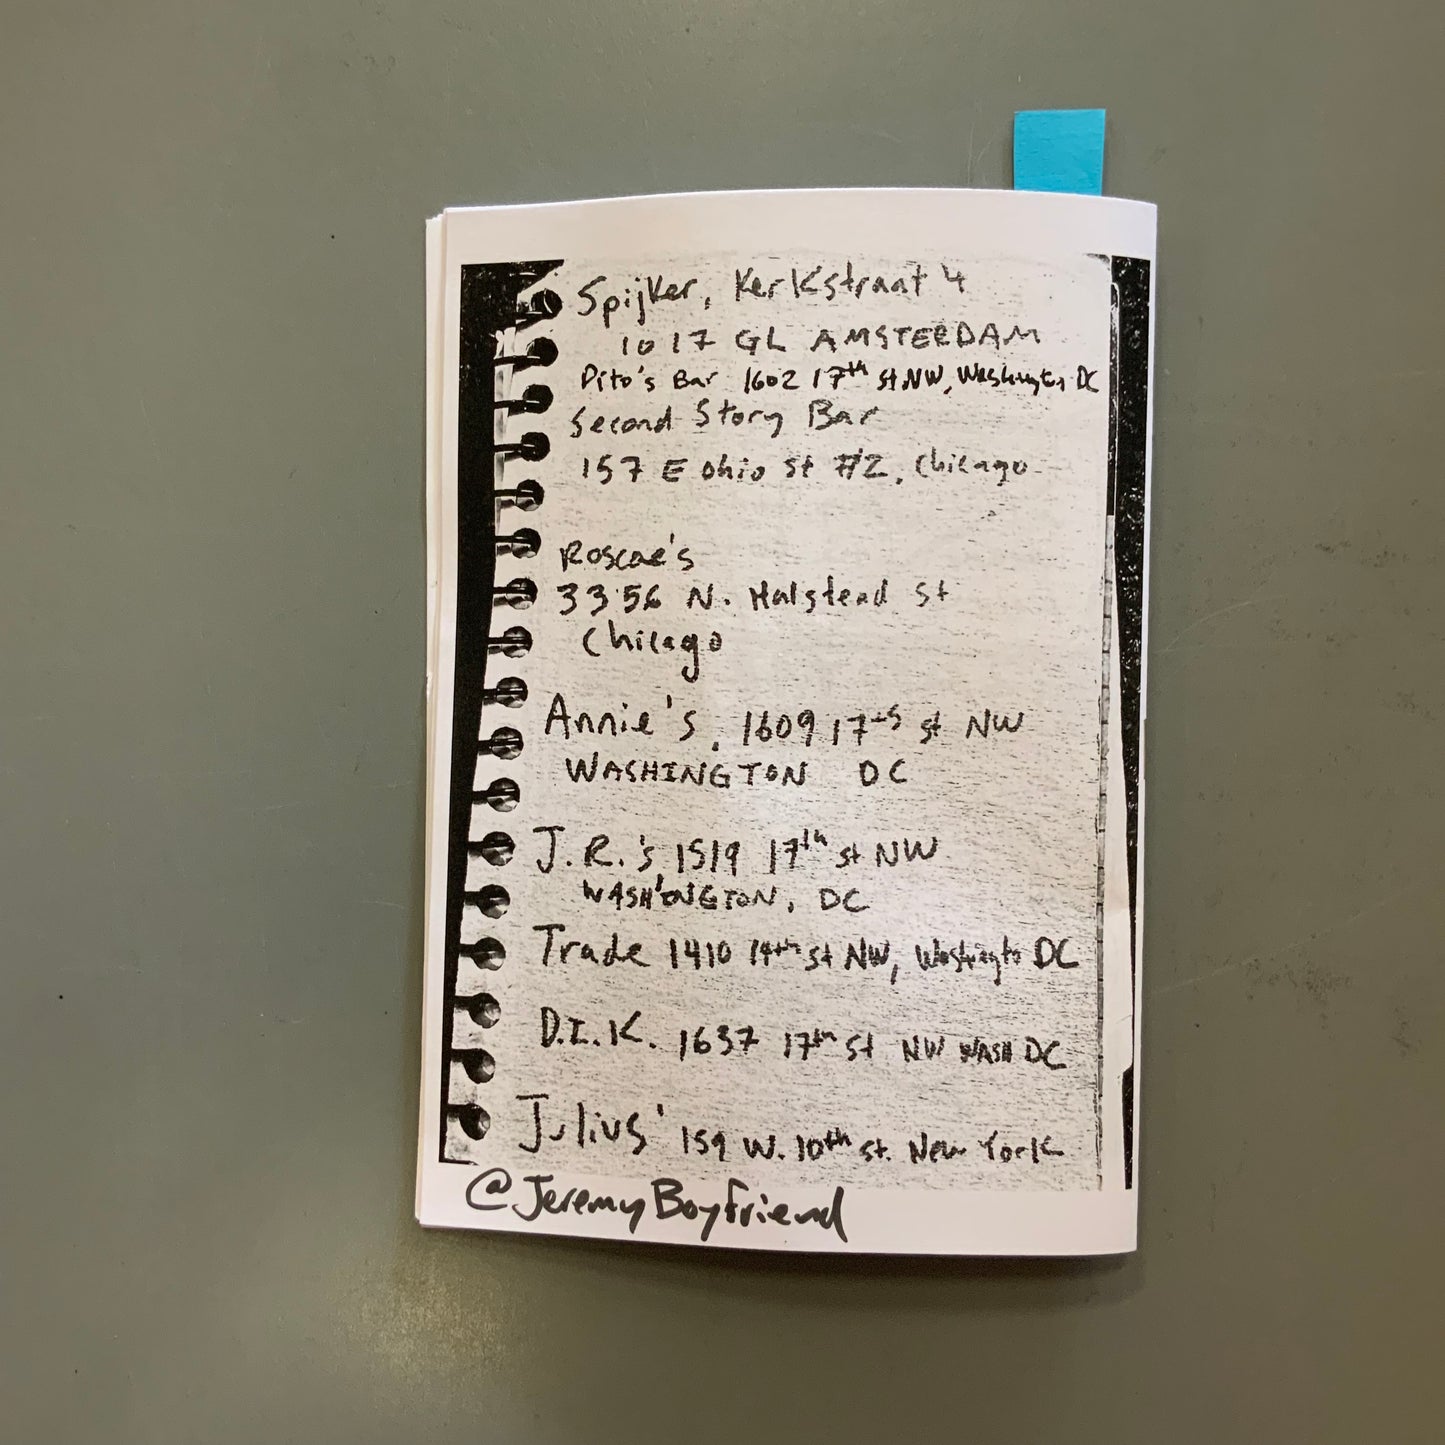 Spijker, Kerkstraat 4
1017 GL AMSTERDAM
Pito's Bar 1602 17th St NW, Washington DC
Second Story Bar
157 E Ohio St #2, Chicago
Roscoe's
3356 N. Halstead St
Chicago
Annie's, 1609 17th St NW
WASHINGTON DC
J.R.'s 1519 17th St NW
WASHINGTON, DC
Trade 1410 14th St NW, Washington DC
D.I.K. 1637 17th St NW WASH DC
Julius' 159 W. 10th St. New York
@JeremyBoyfriend